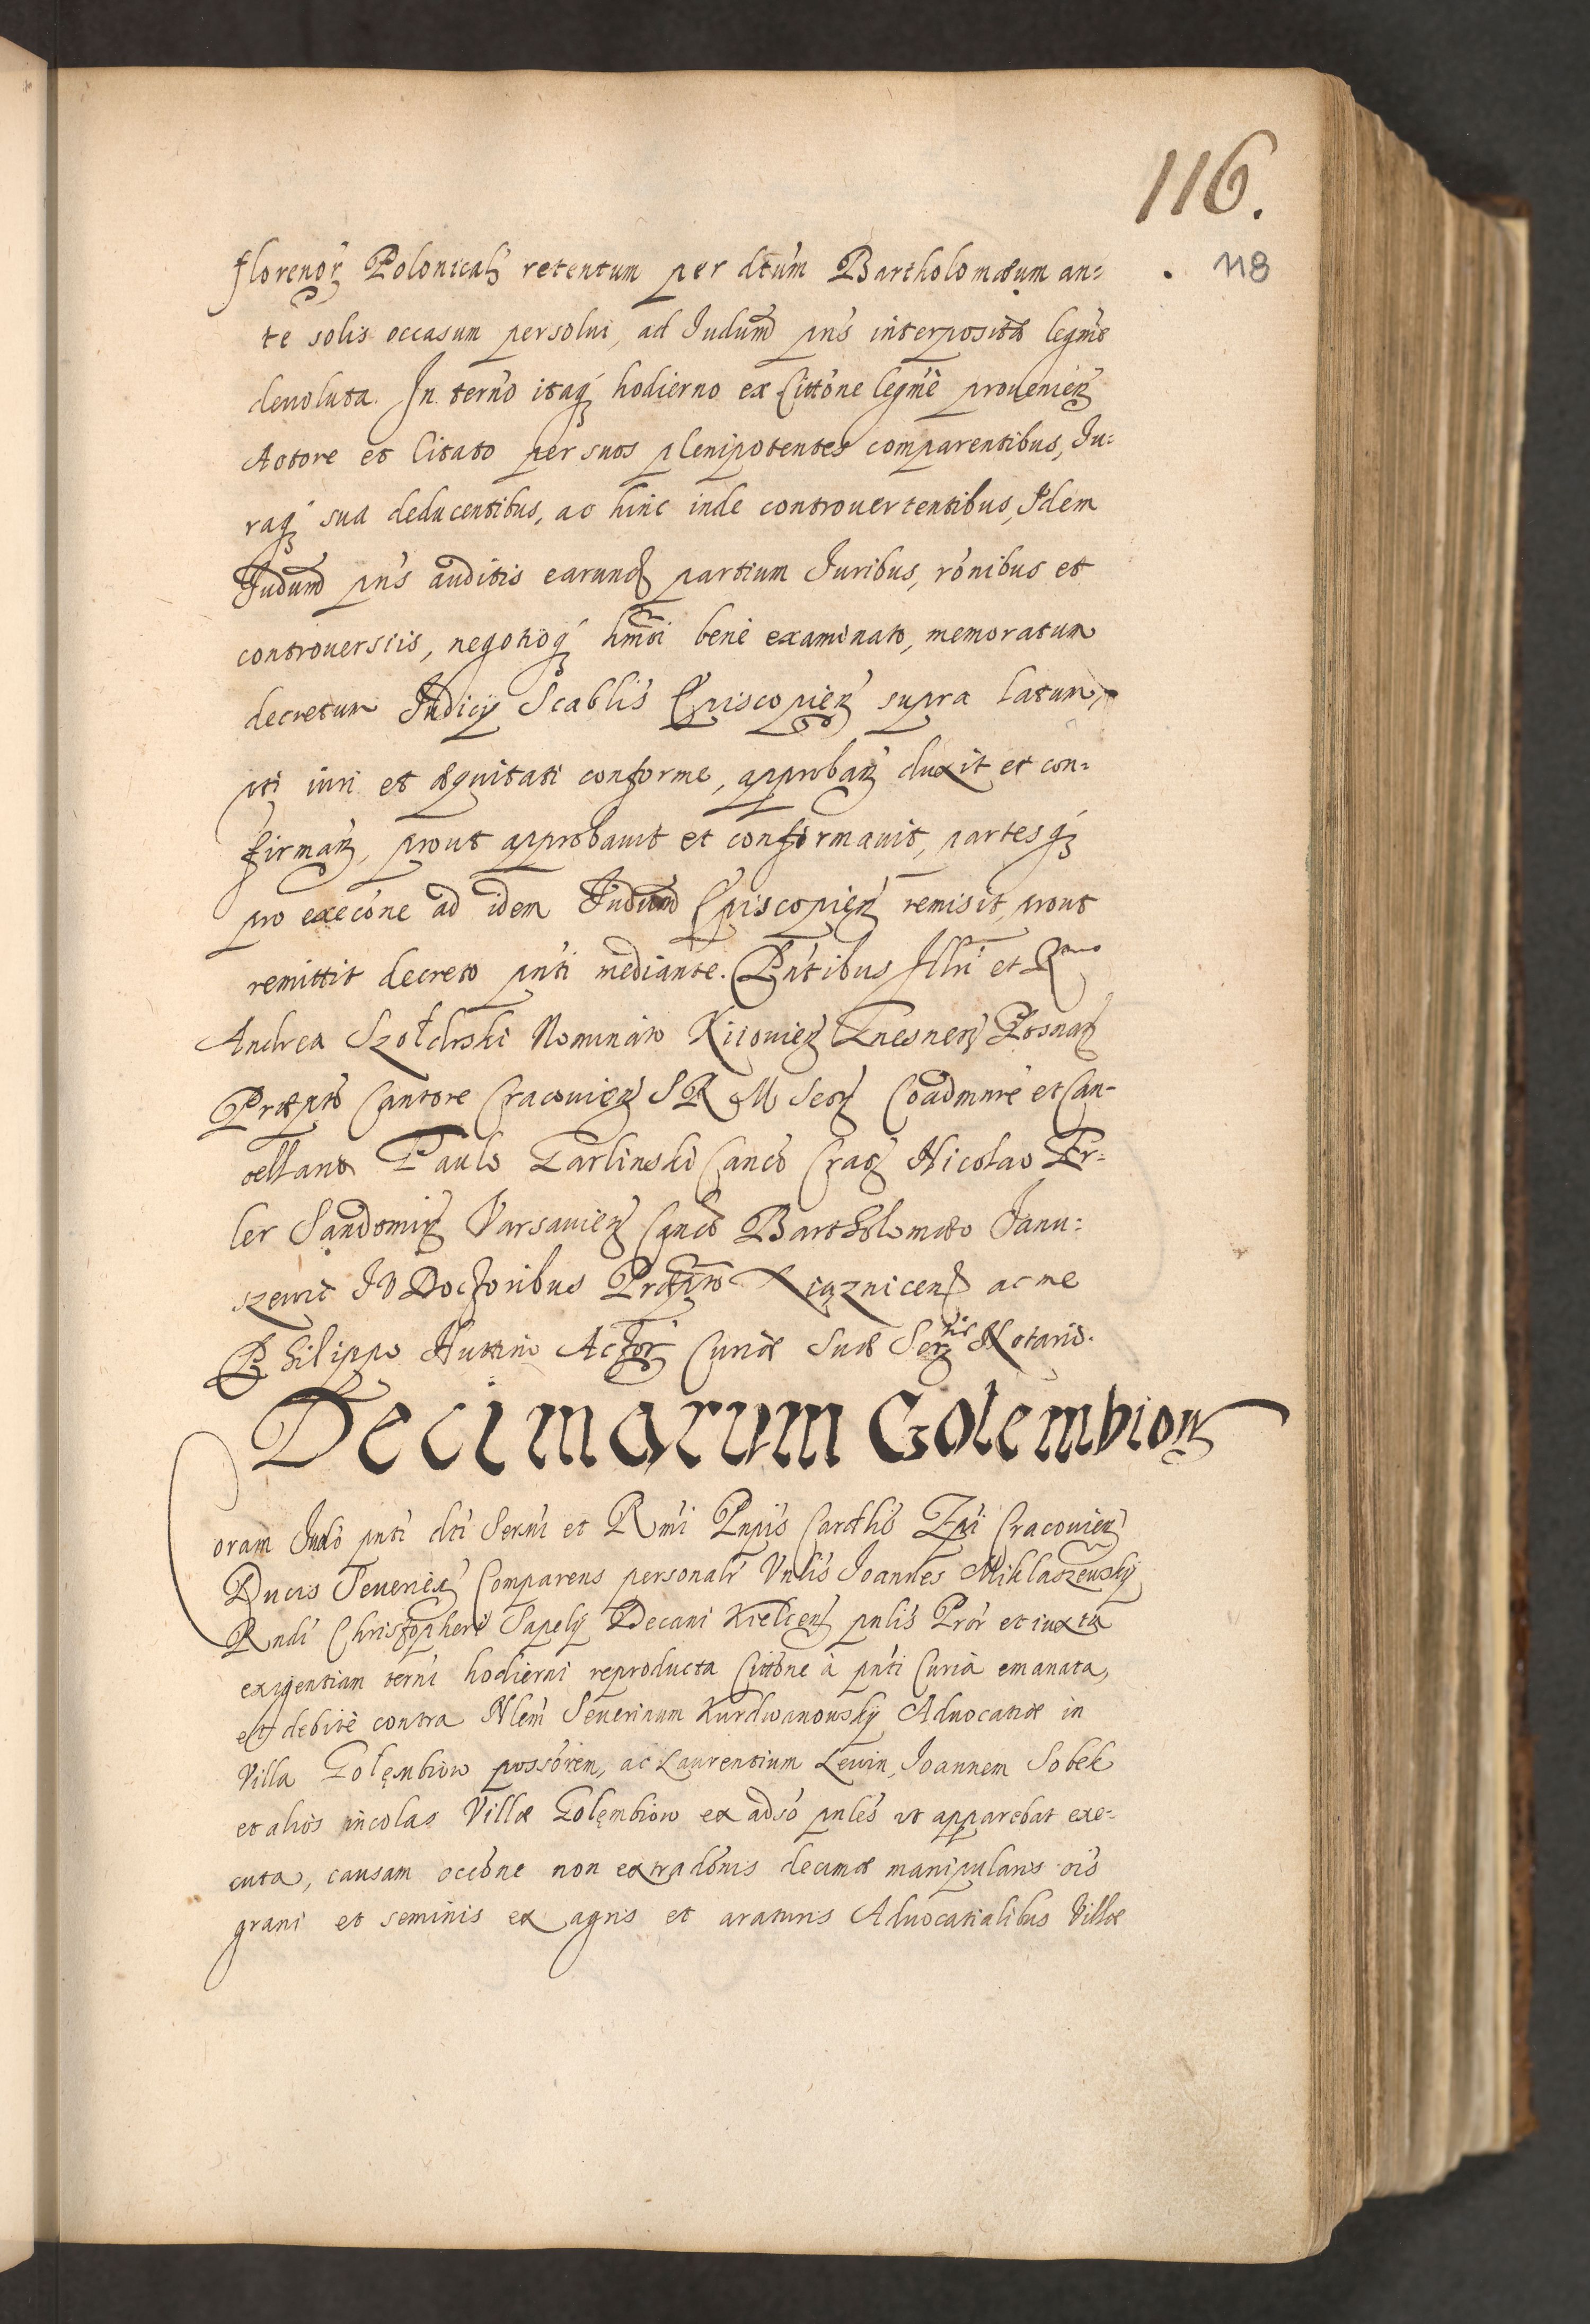 116.
118
florenor Polonical retentum per dtum Bartholomæum an=
te solis occasum persolui, ad Iudum pns interposita legme
deuoluta. In termo itaq hodierno ex Cittone legme prouenien
Actore et Citato per suos plenipotentes comparentibus, Iu=
raq sua deducentibus, ac hinc inde controuertentibus, Idem
Iudum pns auditis earund partium Iuribus, ronibus et
controuersiis, negotioq hmoi bene examinato, memoratum
decretum Iudicij Scablis Episcopien supra latum,
uti iuri et æquitati conforme, approban duxit et con=
firman, prout approbauit et confirmauit, partesq
pro execone ad idem Iudum Episcopien remisit, prout
remittit decreto pnti mediante. Pntibus Illri et Rmo
Andrea Szołdrski Nominato Kiiouien Gnesnen Posnan
Præpto Cantore Cracouien S R M Secr Coadmnre et Can-
cellano Paulo Garlinski Canco Crac Nicolao Er=
ler Sandomir Varsauien Canco Bartholomæo Ianu=
szewic IV Doctoribus Præpto Xiąznicen ac me
Philippo Huttini Actor Curiæ Suæ Sertis Notario.
Decimarum Golembion
Coram Iudo pnti dti Sermi et Rmi Pnpis Cardlis Epi Cracouien
Ducis Seuerien Comparens personalr Vnlis Ioannes Miklaszewskÿ
Rndi Christopheri Sapelÿ Decani Kielcen pnlis Pror et iuxta
exigentiam termi hodierni reproducta Cittone à pnti Curia emanata,
et debitè contra Nlem Seuerinum Kurdwanowskÿ Aduocatiæ in
Villa Golęmbiow possorem, ac Laurentium Lewin, Ioannem Sobek
et alios incolas Villæ Golęmbiow ex adso pnles ut apparebat exe=
cuta, causam occone non extradonis decimæ manipularis ois
grani et seminis ex agris et araturis Aduocatialibus Villæ